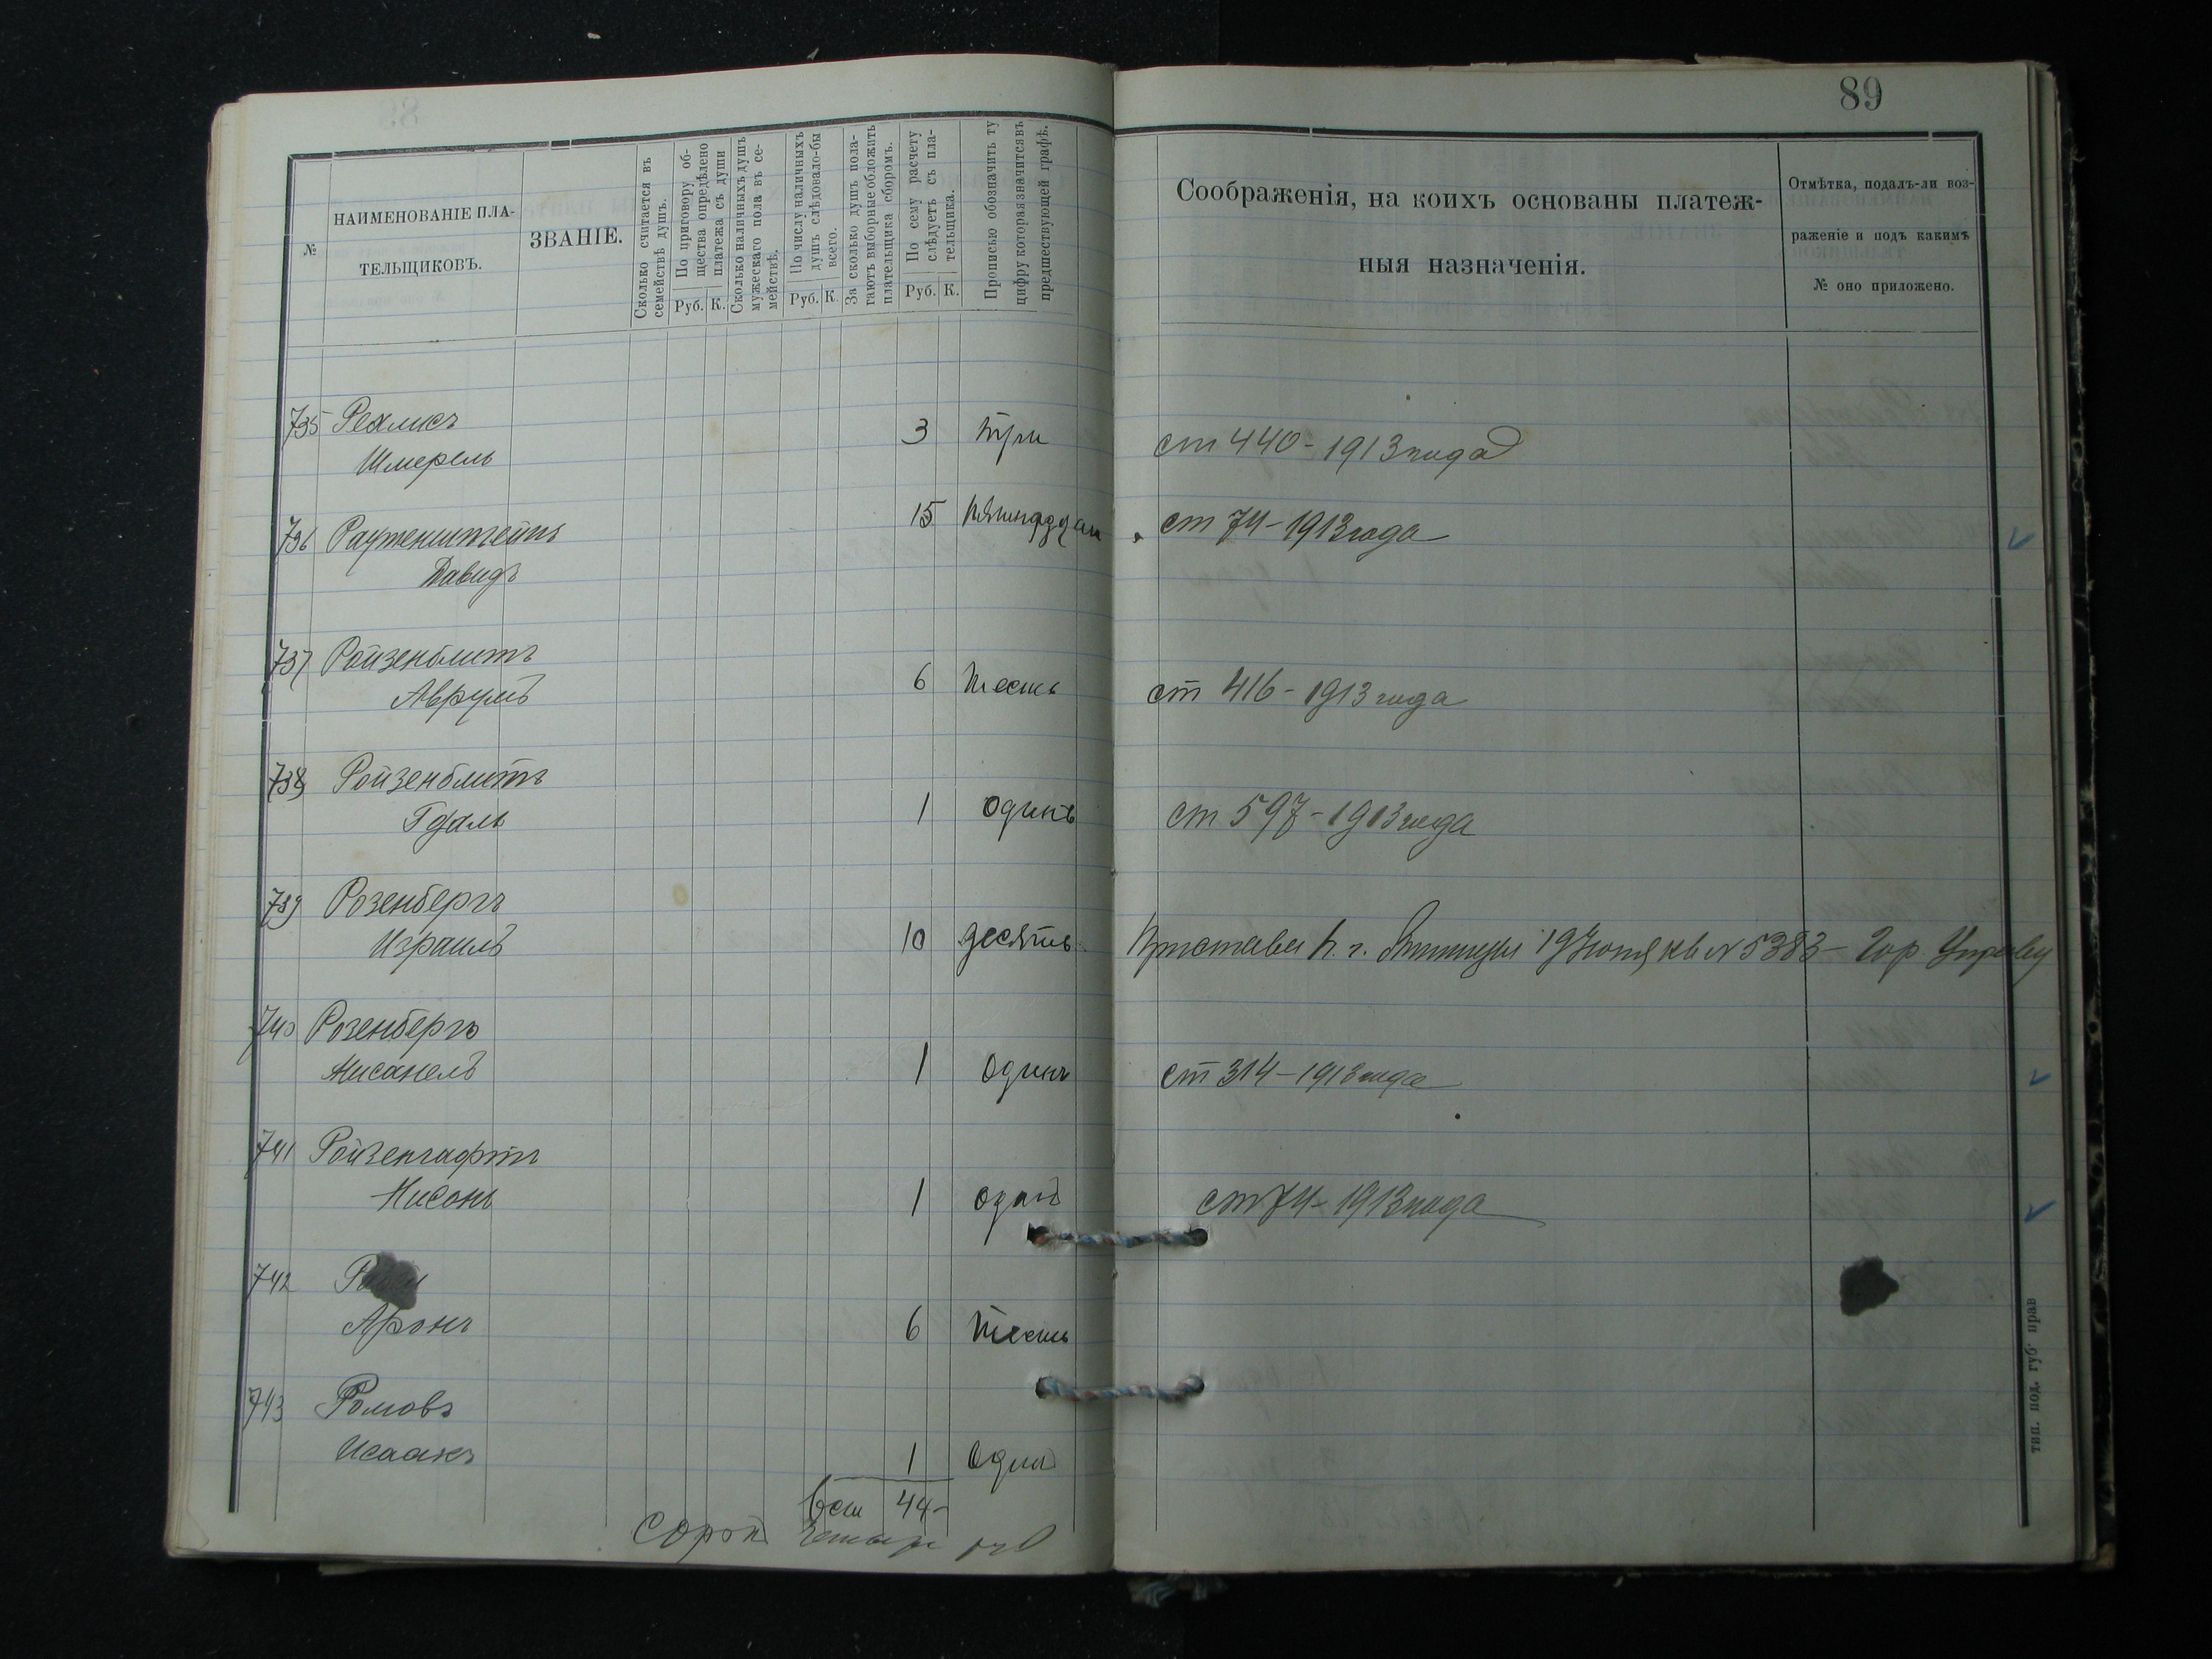 89
№
НАИМЕНОВАНІЕ ПЛА-
ТЕЛЬЩИКОВЪ.
ЗВАНІЕ.
Сколько считается въ
семействѣ душъ.
По приговору об-
щества опредѣлено
платежа съ души
Руб. К.
Сколько наличныхъ душъ
мужескаго пола въ се-
мействѣ.
По числу наличныхъ
душъ слѣдовало-бы
всего.
Руб. К.
За сколько душъ пола-
гаютъ выборные обложить
плательщика сборомъ.
По сему расчету
слѣдуетъ съ пла-
тельщика.
Руб. К.
Прописью обозначить ту
цифру которая значится въ
предшествующей графѣ.
Соображенія, на коихъ основаны платеж-
ныя назначенія.
Отмѣтка, подалъ-ли воз-
раженіе и подъ какимъ
№ оно приложено.
735 Рехлисъ
Шмерель 3 три ст 440 - 1913 года
736 Раутенштейнъ 15 ст 74 - 1913 года
Давидъ
737 Ройзенблитъ
Аврумъ 6 шесть ст 416 - 1913 года
738 Ройзенблитъ
Гдаль 1 одинъ ст 597 - 1913 года
739 Розенбергъ
Израиль 10 десять Пристава г. №5383 - Гор. Управу
740 Розенбергъ
1 одинъ ст 314 - 1913 года
741 Ройзенгафтъ
Нисонъ 1 один ст 74 - 1913 года
742
Аронъ 6 шесть
743 Ромовъ
Исаакъ 1 один
44-
Сорок четыре руб
тип. под. губ. прав